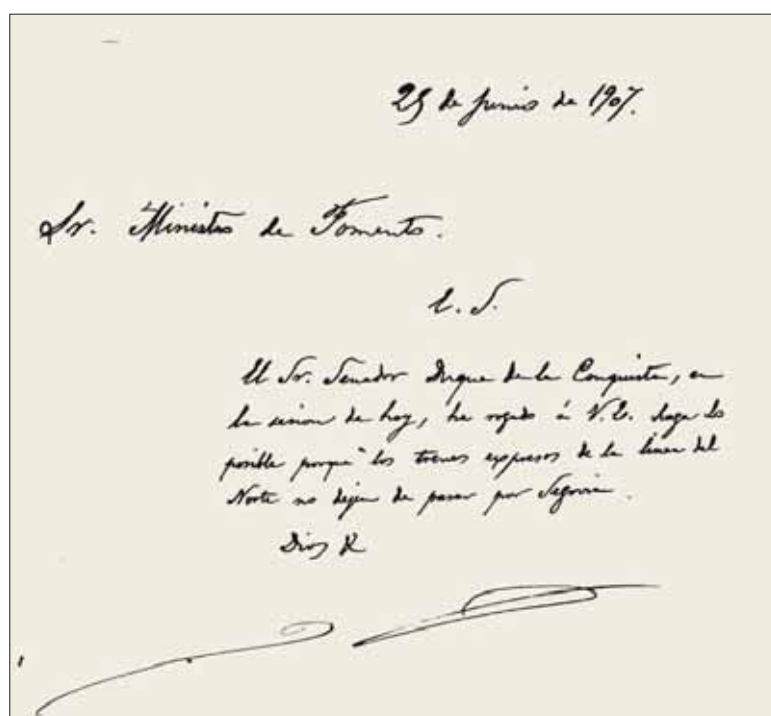 25 de junio de 1907.
Sr. Ministro de Fomento.
E. S.
El Sr. Senador Duque de la Conquista, en
la sesion de hoy, ha rogado á V. E. haga lo
posible porque los trenes expresos de la linea del
Norte no dejen de pasar por Segovia.
Dios &